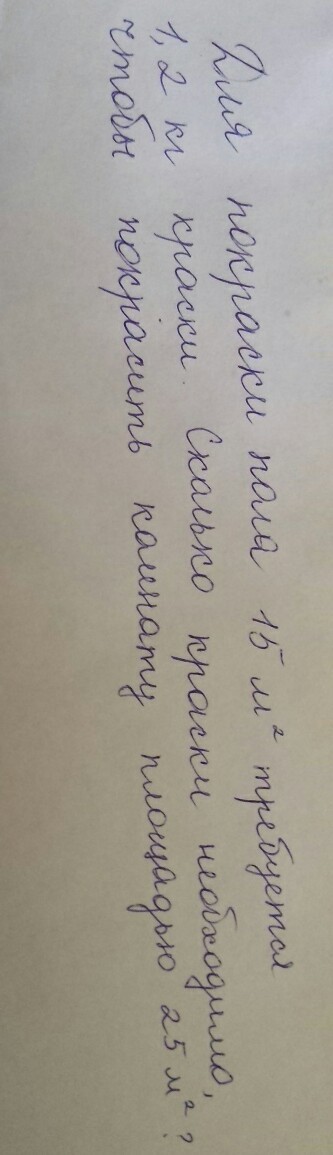 Для покраски пола 15 м² требуется
1,2 кг краски. Сколько краски необходимо,
чтобы покрасить комнату площадью 25 м²?